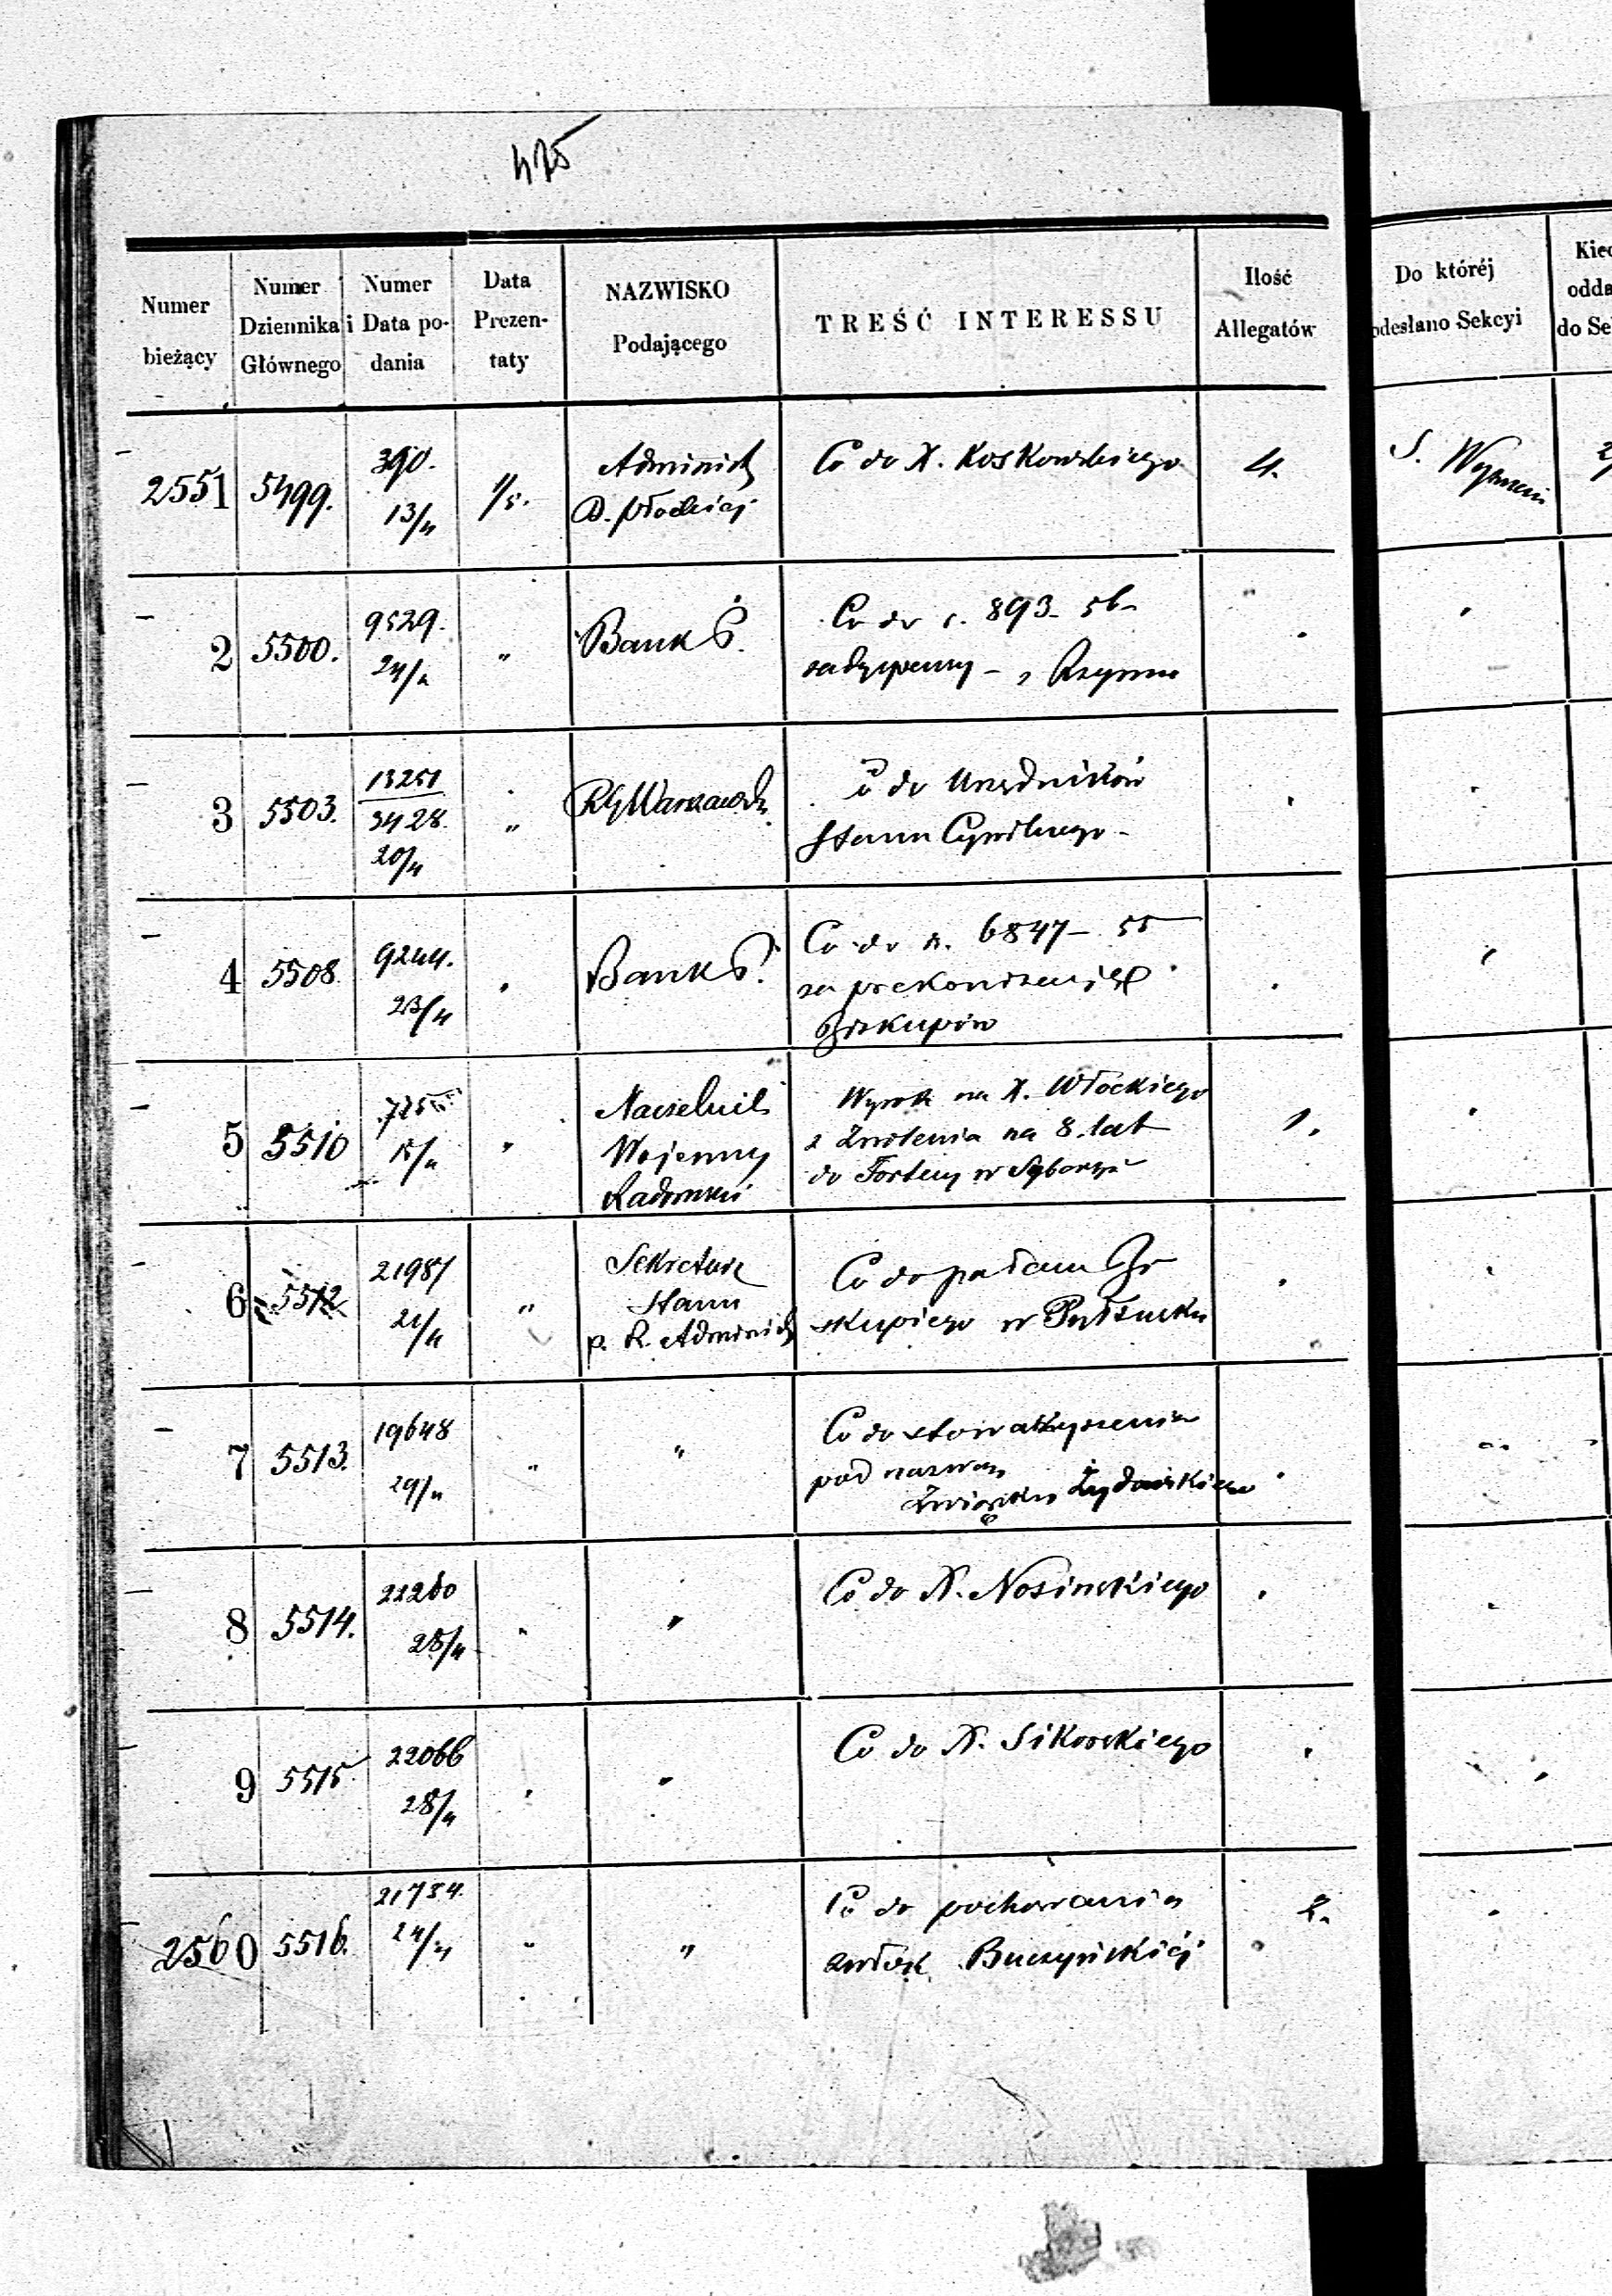 475
Numer bieżący
Numer Dziennika Głównego
Numer i Data podania
Data Prezentaty
NAZWISKO Podającego
TREŚĆ INTERESSU
Ilość Allegatów
Do któréj odesłano Sekcyi
2551 5499. 390. 13/4 1/5. Administ Co do X. Koskowskiego 4. S. Wyznani
D. Płockiej
2 5500. 9529. 24/4 „ Bank P. Co do r. 893 - 56
- z Rzymu
3 5503. 13251 3428 20/4 „ RG Warszawski Co do Urzędników
Stanu Cywilnego -
4 5508. 9244. 23/4 Bank P. Co do n. 6847 - 55
za prekonizacją
Biskupów
5 5510 15/4 „ Naczelnik Wyrok na X. Włockiego 1.
Wojenny z Zwolenia na 8. lat
Radomski do Fortecy w Syberyi
6 5512 21987 21/4 „ Sekretarz Co do pałacu Bi
Stanu skupiego w Pułtusku
p. R. Administ
7 5513. 19648 29/4 „ „ Co do stowarzyszenia
pod nazwą
Związku Żydowskiego
8 5514. 21260 28/4 „ „ Co do X. Nosinskiego
9 5515 22066 28/4 „ „ Co do X. Sikorskiego
2560 5516. 21734. 24/4 „ „ Co do pochowania 2.
zwłok Buczyńskiéj